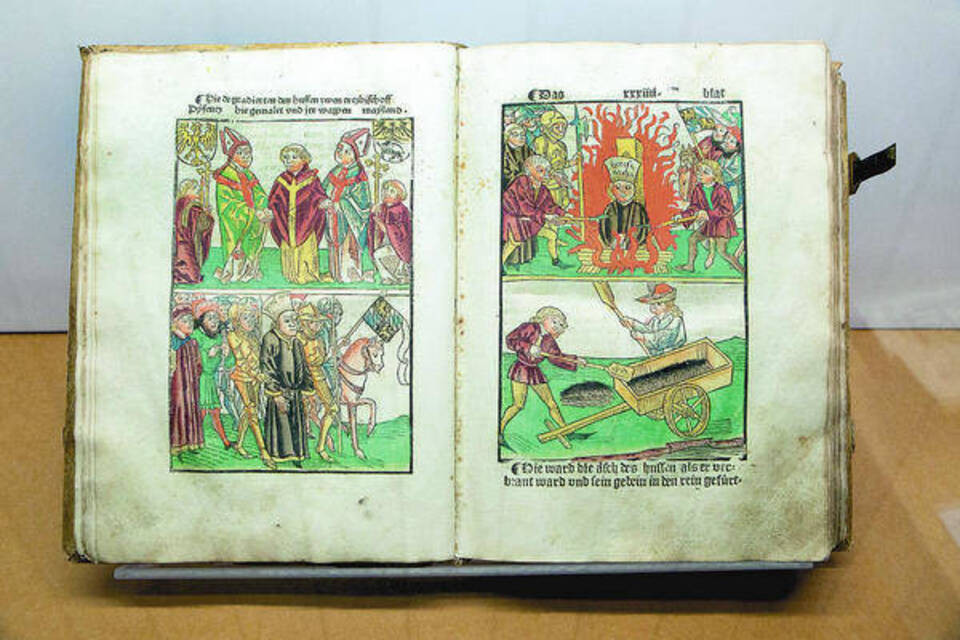 ¶ Hie degradierten den hussen zwen ertzbischoff
hie gemalet vnd jre wappen mayland.
¶ Das xxxiiii. blat
¶ Hie ward die äsch des hussen als er ver-
brant ward vnd sein gebein in den rein gefürt.